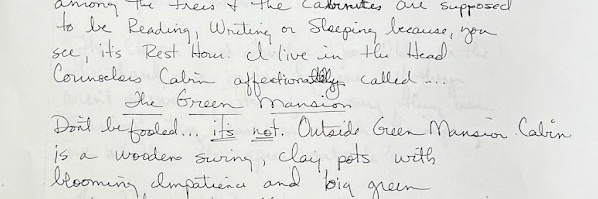 among the trees & the Cabinites are supposed
to be Reading, Writing or Sleeping because, you
see, it's Rest Hour. I live in the Head
Counselors Cabin affectionately called ...
The Green Mansion
Don't be fooled... it's not. Outside Green Mansion Cabin
is a wooden swing, clay pots with
blooming Impatience and big green